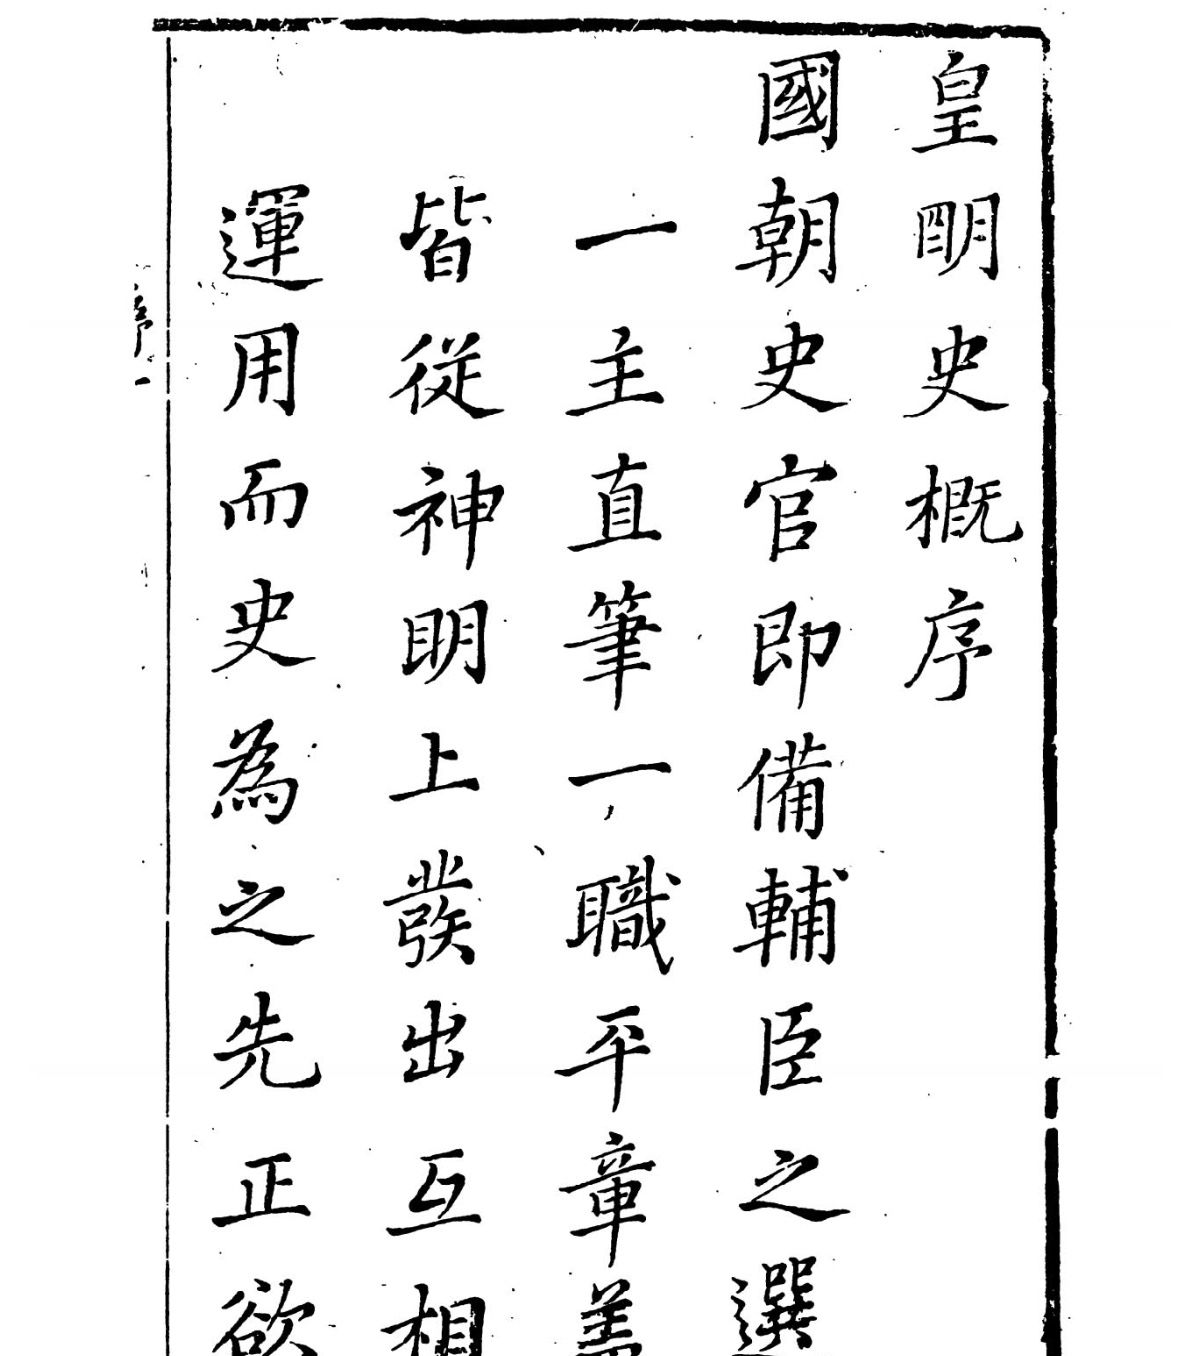 皇明史概序
國朝史官即備輔臣之選
一主直筆一職平章蓋
皆從神明上發出互相
運用而史為之先正欲
序一